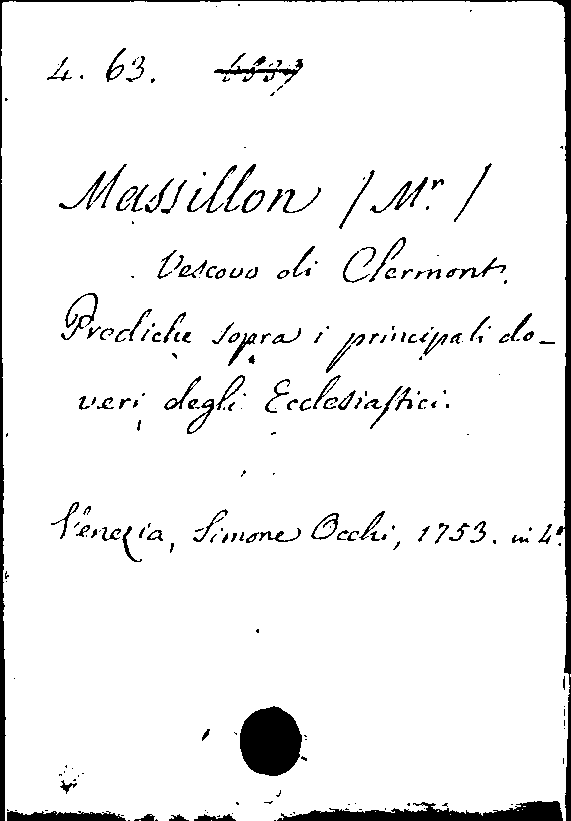 4. 63.
Massillon / Mr. /
Vescovo di Clermont.
Prediche sopra i principali do-
veri degli Ecclesiastici.
Venezia, Simone Occhi, 1753. in 4°.